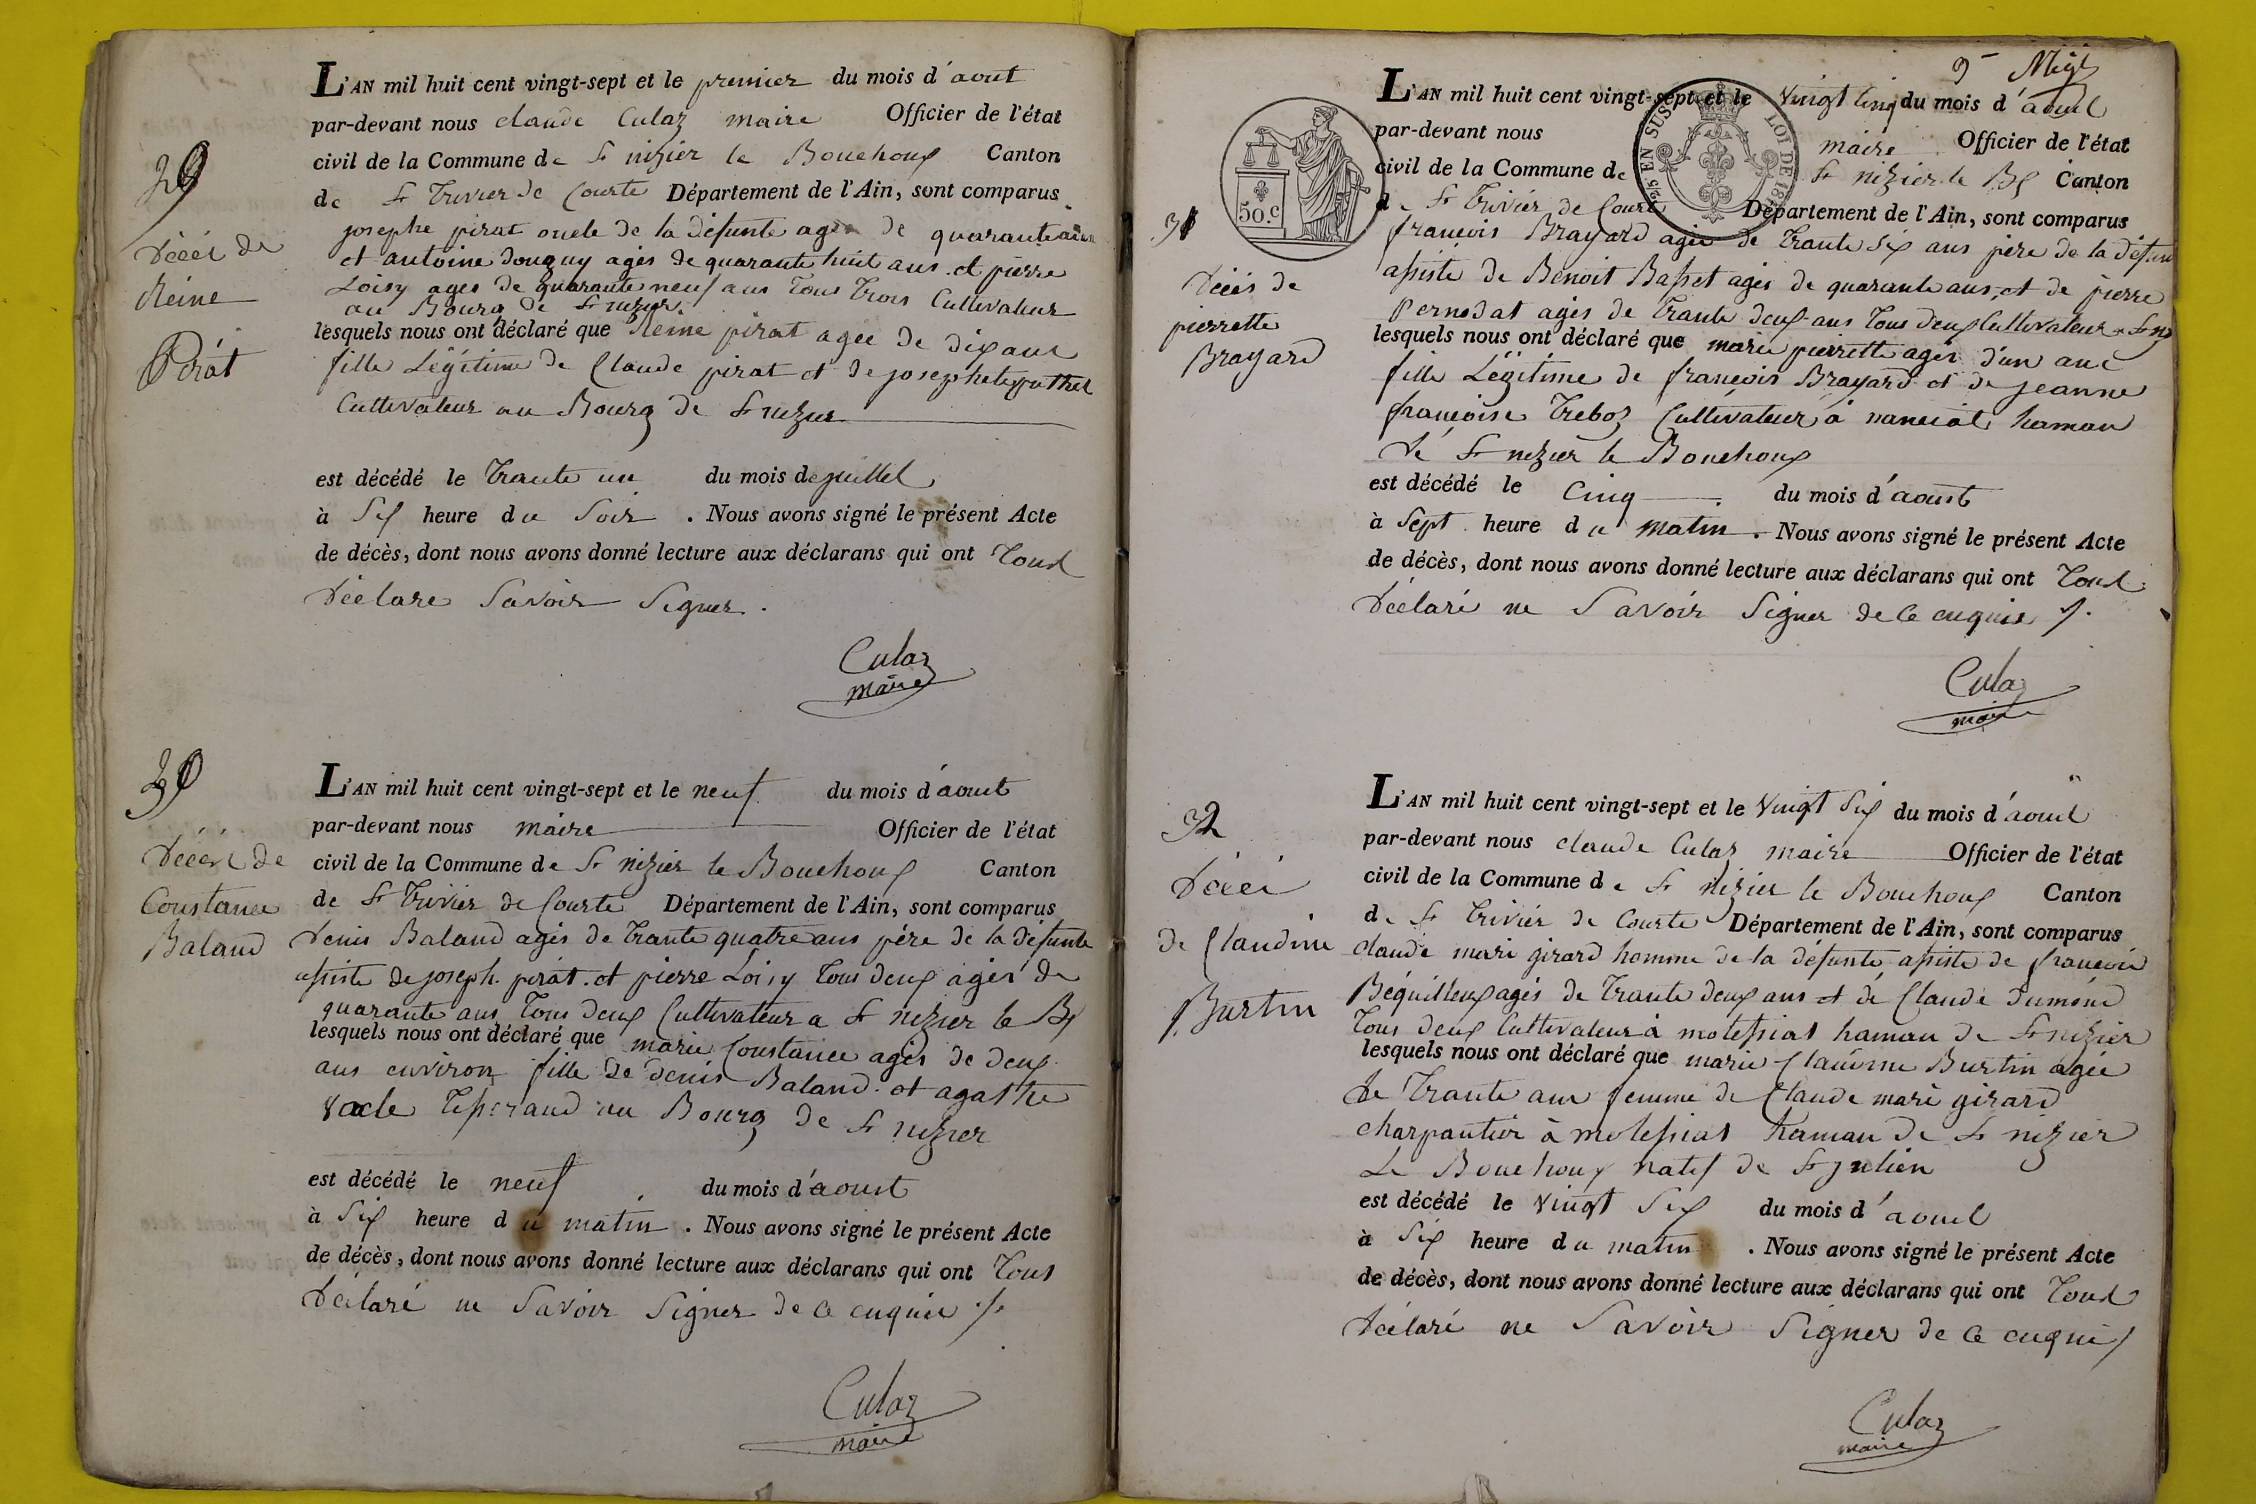 29
Décès de
Reine
Pirat
L'AN mil huit cent vingt-sept et le premier du mois d'aout
par-devant nous claude Culaz maire Officier de l'état
civil de la Commune de St nizier le Bouchoux Canton
de St Trivier de Courte Département de l'Ain, sont comparus
josephe pirat oncle de la défunte agés de quarante ans
et antoine douguy agés de quarante huit ans et pierre
Loisy agés de quarante neuf ans Tous Trois Cultivateur
au Bourg de St nizier
lesquels nous ont déclaré que Reine pirat agée de dix ans
fille Légitime de Claude pirat et de josephete
Cultivateur au Bourg de St nizier
est décédé le Trante un du mois de juillet
à Six heure du Soir . Nous avons signé le présent Acte
de décès, dont nous avons donné lecture aux déclarans qui ont Tous
Déclare Savoir Signer .
Culaz
maire
30
Décès de
Constance
Baland
L'AN mil huit cent vingt-sept et le neuf du mois d'aout
par-devant nous maire Officier de l'état
civil de la Commune de St nizier le Bouchoux Canton
de St Trivier de Courte Département de l'Ain, sont comparus
denis Baland agés de Trante quatre ans père de la défunte
assiste de joseph pirat et pierre Loisy Tous deux agés de
quarante ans Tous deux Cultivateur a St nizier le Bx
lesquels nous ont déclaré que marie Constance agés de deux
ans environ fille de denis Baland et agathe
vacle Tisserand au Bourg de St nizier
est décédé le neuf du mois d'aoust
à Six heure du matin . Nous avons signé le présent Acte
de décès, dont nous avons donné lecture aux déclarans qui ont Tous
Déclaré ne Savoir Signer de ce enquis ./.
Culaz
maire
9
31
Décès de
pierrette
Brayard
50.c
25 EN SUS
LOI DE
L'AN mil huit cent vingt-sept et le vingt cinq du mois d'aout
par-devant nous maire Officier de l'état
civil de la Commune de St nizier le Bx Canton
de St Trivier de Courte Département de l'Ain, sont comparus
françois Brayard agée de Trante Six ans père de la défunte
assiste de Benoit Basset agés de quarante ans, et de pierre
Pernodat agés de Trante deux ans Tous deux Cultivateur a St
lesquels nous ont déclaré que marie pierrette agés d'un ans
fille Légitime de françois Brayard et de jeanne
françoise Treboz Cultivateur à nanciat hamau
de St nizier le Bouchoux
est décédé le Cinq du mois d'aoust
à Sept heure du matin . Nous avons signé le présent Acte
de décès, dont nous avons donné lecture aux déclarans qui ont Tous
Déclaré ne Savoir Signer de ce enquis ./.
Culaz
maire
32
Décès
de Claudine
Burtin
L'AN mil huit cent vingt-sept et le vingt Six du mois d'aout
par-devant nous claude Culaz maire Officier de l'état
civil de la Commune de St nizier le Bouchoux Canton
de St Trivier de Courte Département de l'Ain, sont comparus
claude marie girard homme de la défunte assiste de françois
Béquilleux agés de Trante deux ans et de Claude
Tous deux Cultivateur à molessiat hamau de St nizier
lesquels nous ont déclaré que marie Claudine Burtin agée
de Trante ans femme de Claude marie girard
charpantier à molessiat hamau de St nizier
Le Bouchoux natif de St julien
est décédé le vingt Six du mois d'aout
à Six heure du matin . Nous avons signé le présent Acte
de décès, dont nous avons donné lecture aux déclarans qui ont Tous
Déclaré ne Savoir Signer de ce enquis /
Culaz
maire